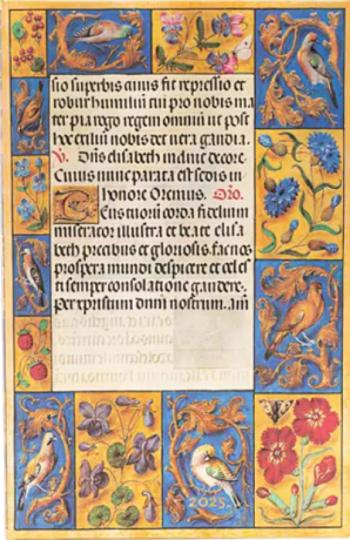 sio superbis cuius fit repressio et
robur humiliū tui pro nobis ma
ter pia rogo regem omniū ut post
hoc exiliū nobis det vera gaudia.
V. Dn̄s elisabeth induit decore
Cuius nunc parata est sedis in
honore Oremus. Oro.
eus tuorū corda fidelium
miserator illustra et beate elisa
beth precibus et gloriosis fac nos
prospera mundi despicere et celes
ti semper consolatione gaudere.
Per xpristum dnm̄ nostrum. am̄
2025